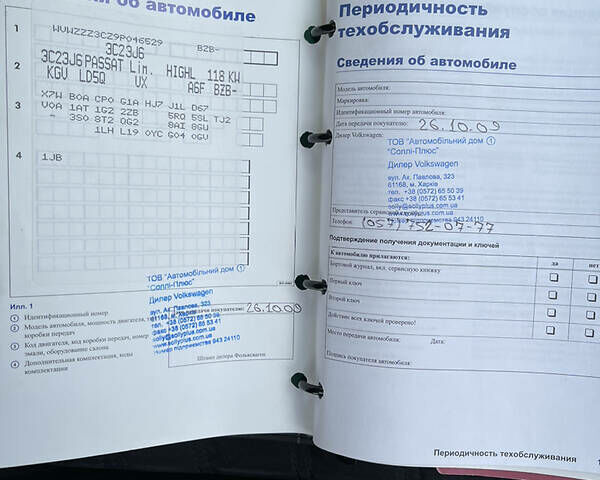 об автомобиле
1
WVWZZZ3CZ9P046529 BZB-
3C23J6
2
3C23J6 PASSAT Lim. HIGHL 118 KW
KGV LD5Q UX A6F BZB-
3
X7W B0A CP0 G1A HJ7 J1L D67
V0A 1AT 1G2 2ZB 5RQ 5SL TJ2
- 3S0 8T2 0G2 8AI 8GU
1LH L19 0YC G04 0GU
4
1JB
ТОВ "Автомобільний дім ①
"Соллі-Плюс"
Дилер Volkswagen
вул. Ак. Павлова, 323
61168, м. Харків
тел. +38 (0572) 65 50 39
факс +38 (0572) 65 53 41
solly@sollyplus.com.ua
www.sollyplus.com.ua
Номер підприємства 943 24110
покупателю: 26.10.09
Штамп дилера Фольксваген
Илл. 1
① Идентификационный номер
② Модель автомобиля, мощность двигателя,
коробки передач
③ Код двигателя, код коробки передач, номер
эмали, оборудование салона
④ Дополнительная комплектация, коды
комплектации
Периодичность
техобслуживания
Сведения об автомобиле
Модель автомобиля:
Маркировка:
Идентификационный номер автомобиля:
Дата передачи покупателю: 26.10.09
Дилер Volkswagen:
ТОВ "Автомобільний дім ①
"Соллі-Плюс"
Дилер Volkswagen
вул. Ак. Павлова, 323
61168, м. Харків
тел. +38 (0572) 65 50 39
факс +38 (0572) 65 53 41
solly@sollyplus.com.ua
www.sollyplus.com.ua
Представитель сервисной 943 24110
Телефон: (057) 752-07-77
Подтверждение получения документации и ключей
К автомобилю прилагаются: да нет
Бортовой журнал, вкл. сервисную книжку
Первый ключ
Второй ключ
Действие всех ключей проверено!
Место передачи автомобиля: Дата:
Подпись покупателя автомобиля:
Периодичность техобслуживания